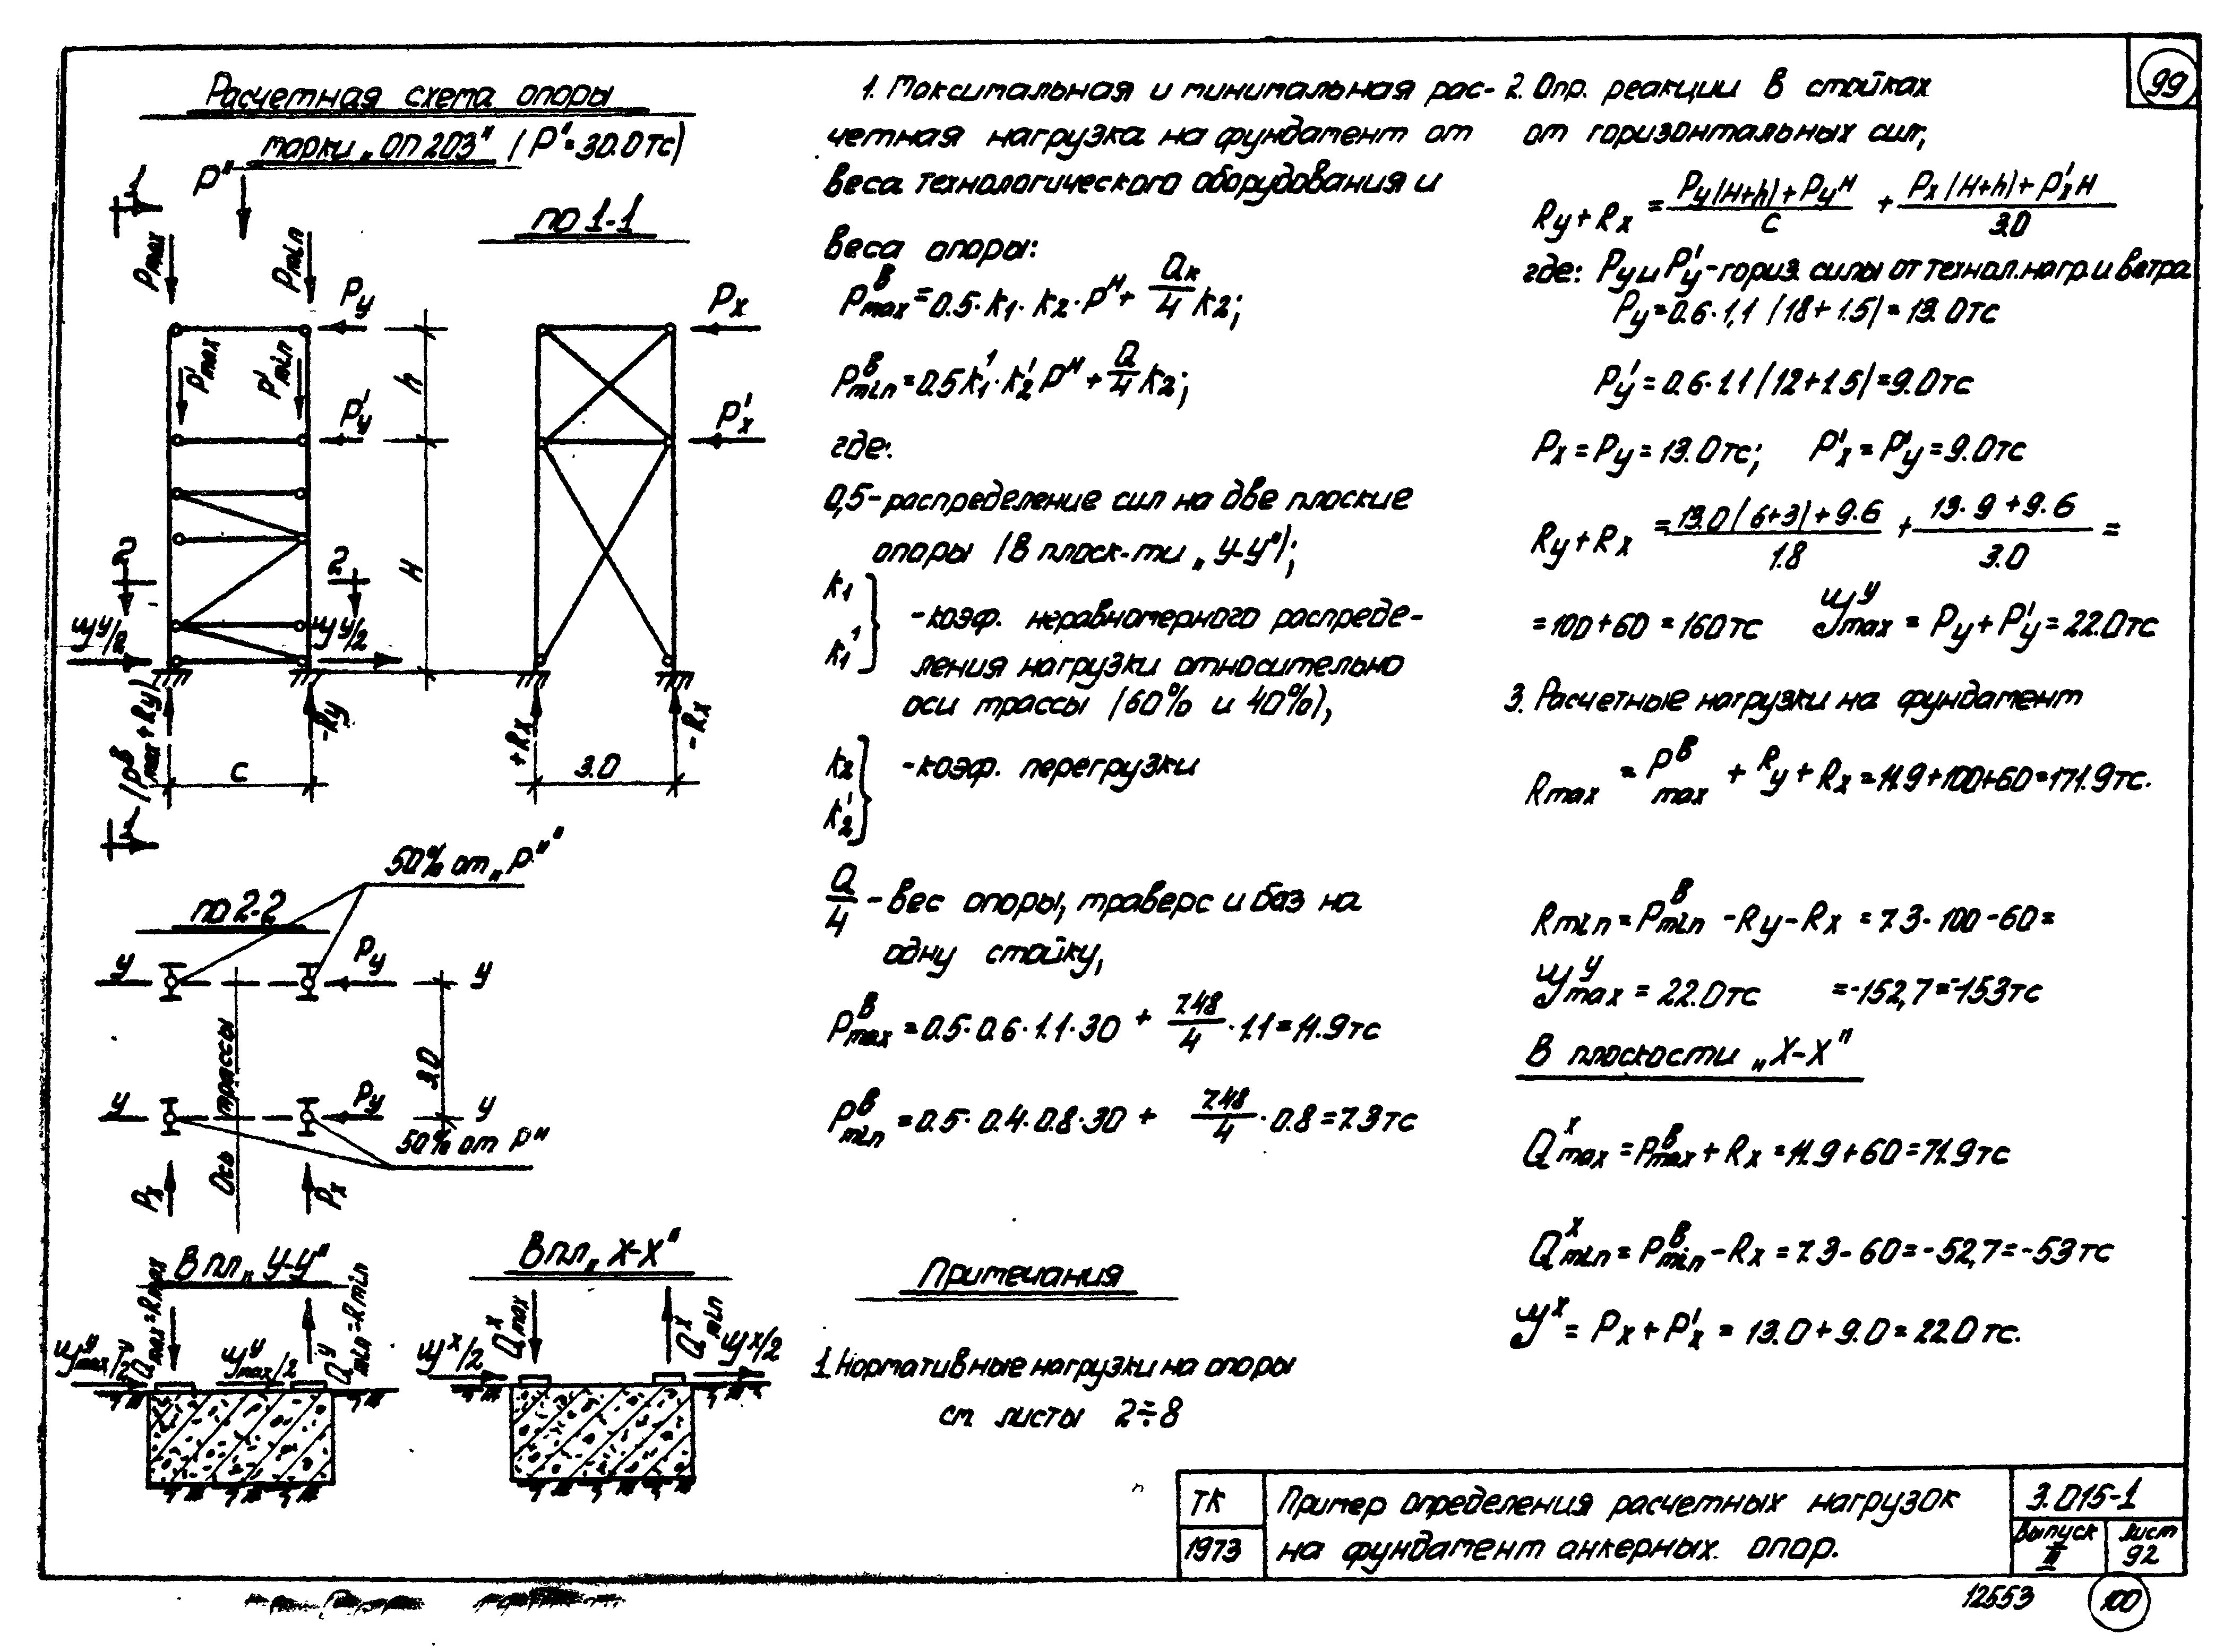 99
Расчетная схема опоры
марки „ОП 203" (P'=30.0тс)
P"
по 1-1
Pmax
Pmin
Py
Px
P'max
P'min
P'y
P'x
h
H
2
2
Ψy/2
Ψy/2
(PВmax+Ry)
-Ry
+Rx
-Rx
c
3.0
50% от „P""
по 2-2
y
Py
y
Ось трассы
3.0
y
Py
y
50% от P"
Px
Px
В пл „ y-y"
В пл „ x-x"
Qymax=Rmax
Qymin=Rmin
Ψymax/2
Ψymax/2
Qxmax
Qxmin
Ψx/2
Ψx/2
1. Максимальная и минимальная рас-
четная нагрузка на фундамент от
веса технологического оборудования и
веса опоры:
PВmax=0.5·k1·k2·Pн+Qк/4 k2;
PВmin=0.5k1'·k2'Pн+Q/4 k2;
где:
0,5-распределение сил на две плоские
опоры (в плоск-ти „ y-y");
k1
k1'
-коэф. неравномерного распреде-
ления нагрузки относительно
оси трассы (60% и 40%),
k2
k2'
-коэф. перегрузки
Q/4 -вес опоры, траверс и баз на
одну стойку,
PВmax=0.5·0.6·1.1·30 + 7.48/4 ·1.1=11.9тс
PВmin=0.5·0.4·0.8·30 + 7.48/4 ·0.8=7.3тс
Примечания
1. Нормативные нагрузки на опоры
см листы 2÷8
2. Опр. реакции в стойках
от горизонтальных сил;
Ry+Rx = Py(H+h)+PyН/c + Px(H+h)+P'xH/3.0
где: Py и P'y-гориз. силы от технол. нагр. и ветра
Py=0.6·1,1 (18+1.5)=13.0тс
P'y=0.6·1.1(12+1.5)=9.0тс
Px=Py=13.0тс; P'x=P'y=9.0тс
Ry+Rx = 13.0(6+3)+9.6/1.8 + 13·9+9.6/3.0 =
=100+60=160тс Ψymax = Py+P'y=22.0тс
3. Расчетные нагрузки на фундамент
Rmax = PВmax + Ry+Rx=11.9+100+60=171.9тс.
Rmin=PВmin -Ry-Rx =7.3-100-60=
Ψymax = 22.0тс =-152,7=-153тс
В плоскости „X-X"
Qxmax=PВmax+Rx=11.9+60=71.9тс
Qxmin=PВmin-Rx=7.3-60=-52,7=-53тс
Ψx= Px+P'x = 13.0+9.0=22.0тс.
ТК
1973
Пример определения расчетных нагрузок
на фундамент анкерных опор.
3.015-1
Выпуск
III
лист
92
12553
100